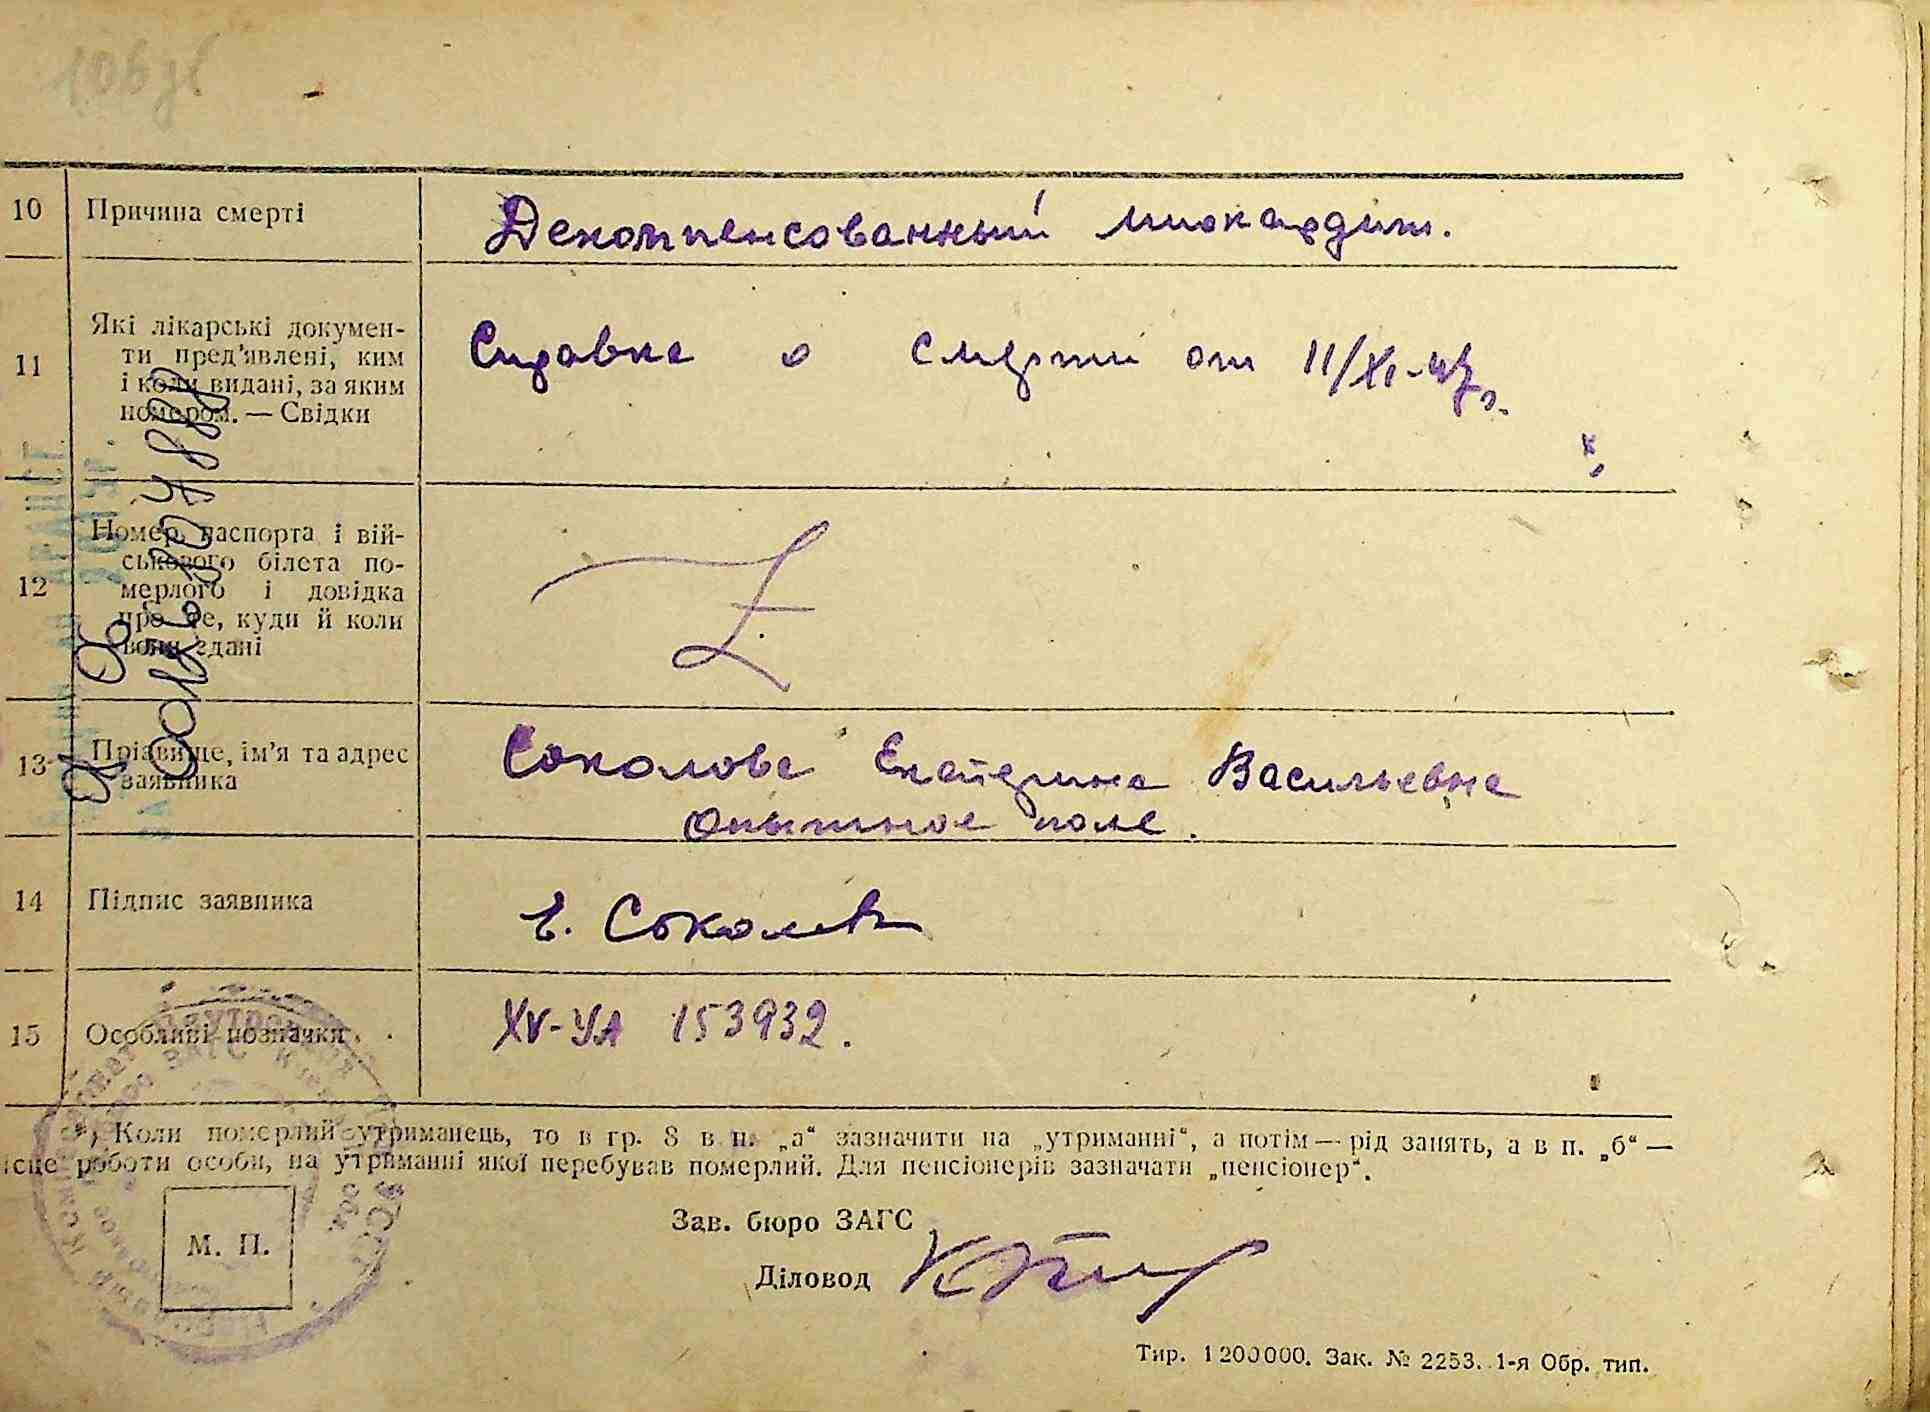 10 Причина смерті Декомпенсованный миокардит.
11 Які лікарські докумен-
ти пред'явлені, ким
і коли видані, за яким
номером. — Свідки
Справка о смерти от 11/XI-47г.
12 Номер паспорта і вій-
ськового білета по-
мерлого і довідка
про те, куди й коли
вони здані
13 Прізвище, ім'я та адрес
заявника
Соколова Екатерина Васильевна
Опытное поле.
14 Підпис заявника Е. Соколова
15 Особливі позначки XV-УА 153932.
*) Коли померлий утриманець, то в гр. 8 в п. „а“ зазначити на „утриманні“, а потім — рід занять, а в п. „б“ —
ісце роботи особи, на утриманні якої перебував померлий. Для пенсіонерів зазначати „пенсіонер“.
М. П.
Зав. бюро ЗАГС
Діловод
Тир. 1200000. Зак. № 2253. 1-я Обр. тип.